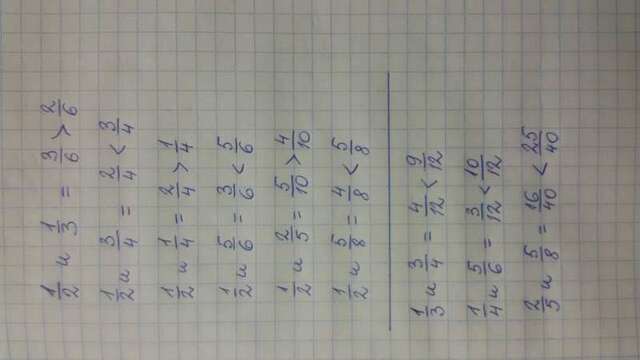 1/2 и 1/3 = 3/6 > 2/6
1/2 и 3/4 = 2/4 < 3/4
1/2 и 1/4 = 2/4 > 1/4
1/2 и 5/6 = 3/6 < 5/6
1/2 и 2/5 = 5/10 > 4/10
1/2 и 5/8 = 4/8 < 5/8
1/3 и 3/4 = 4/12 < 9/12
1/4 и 5/6 = 3/12 < 10/12
2/5 и 5/8 = 16/40 < 25/40